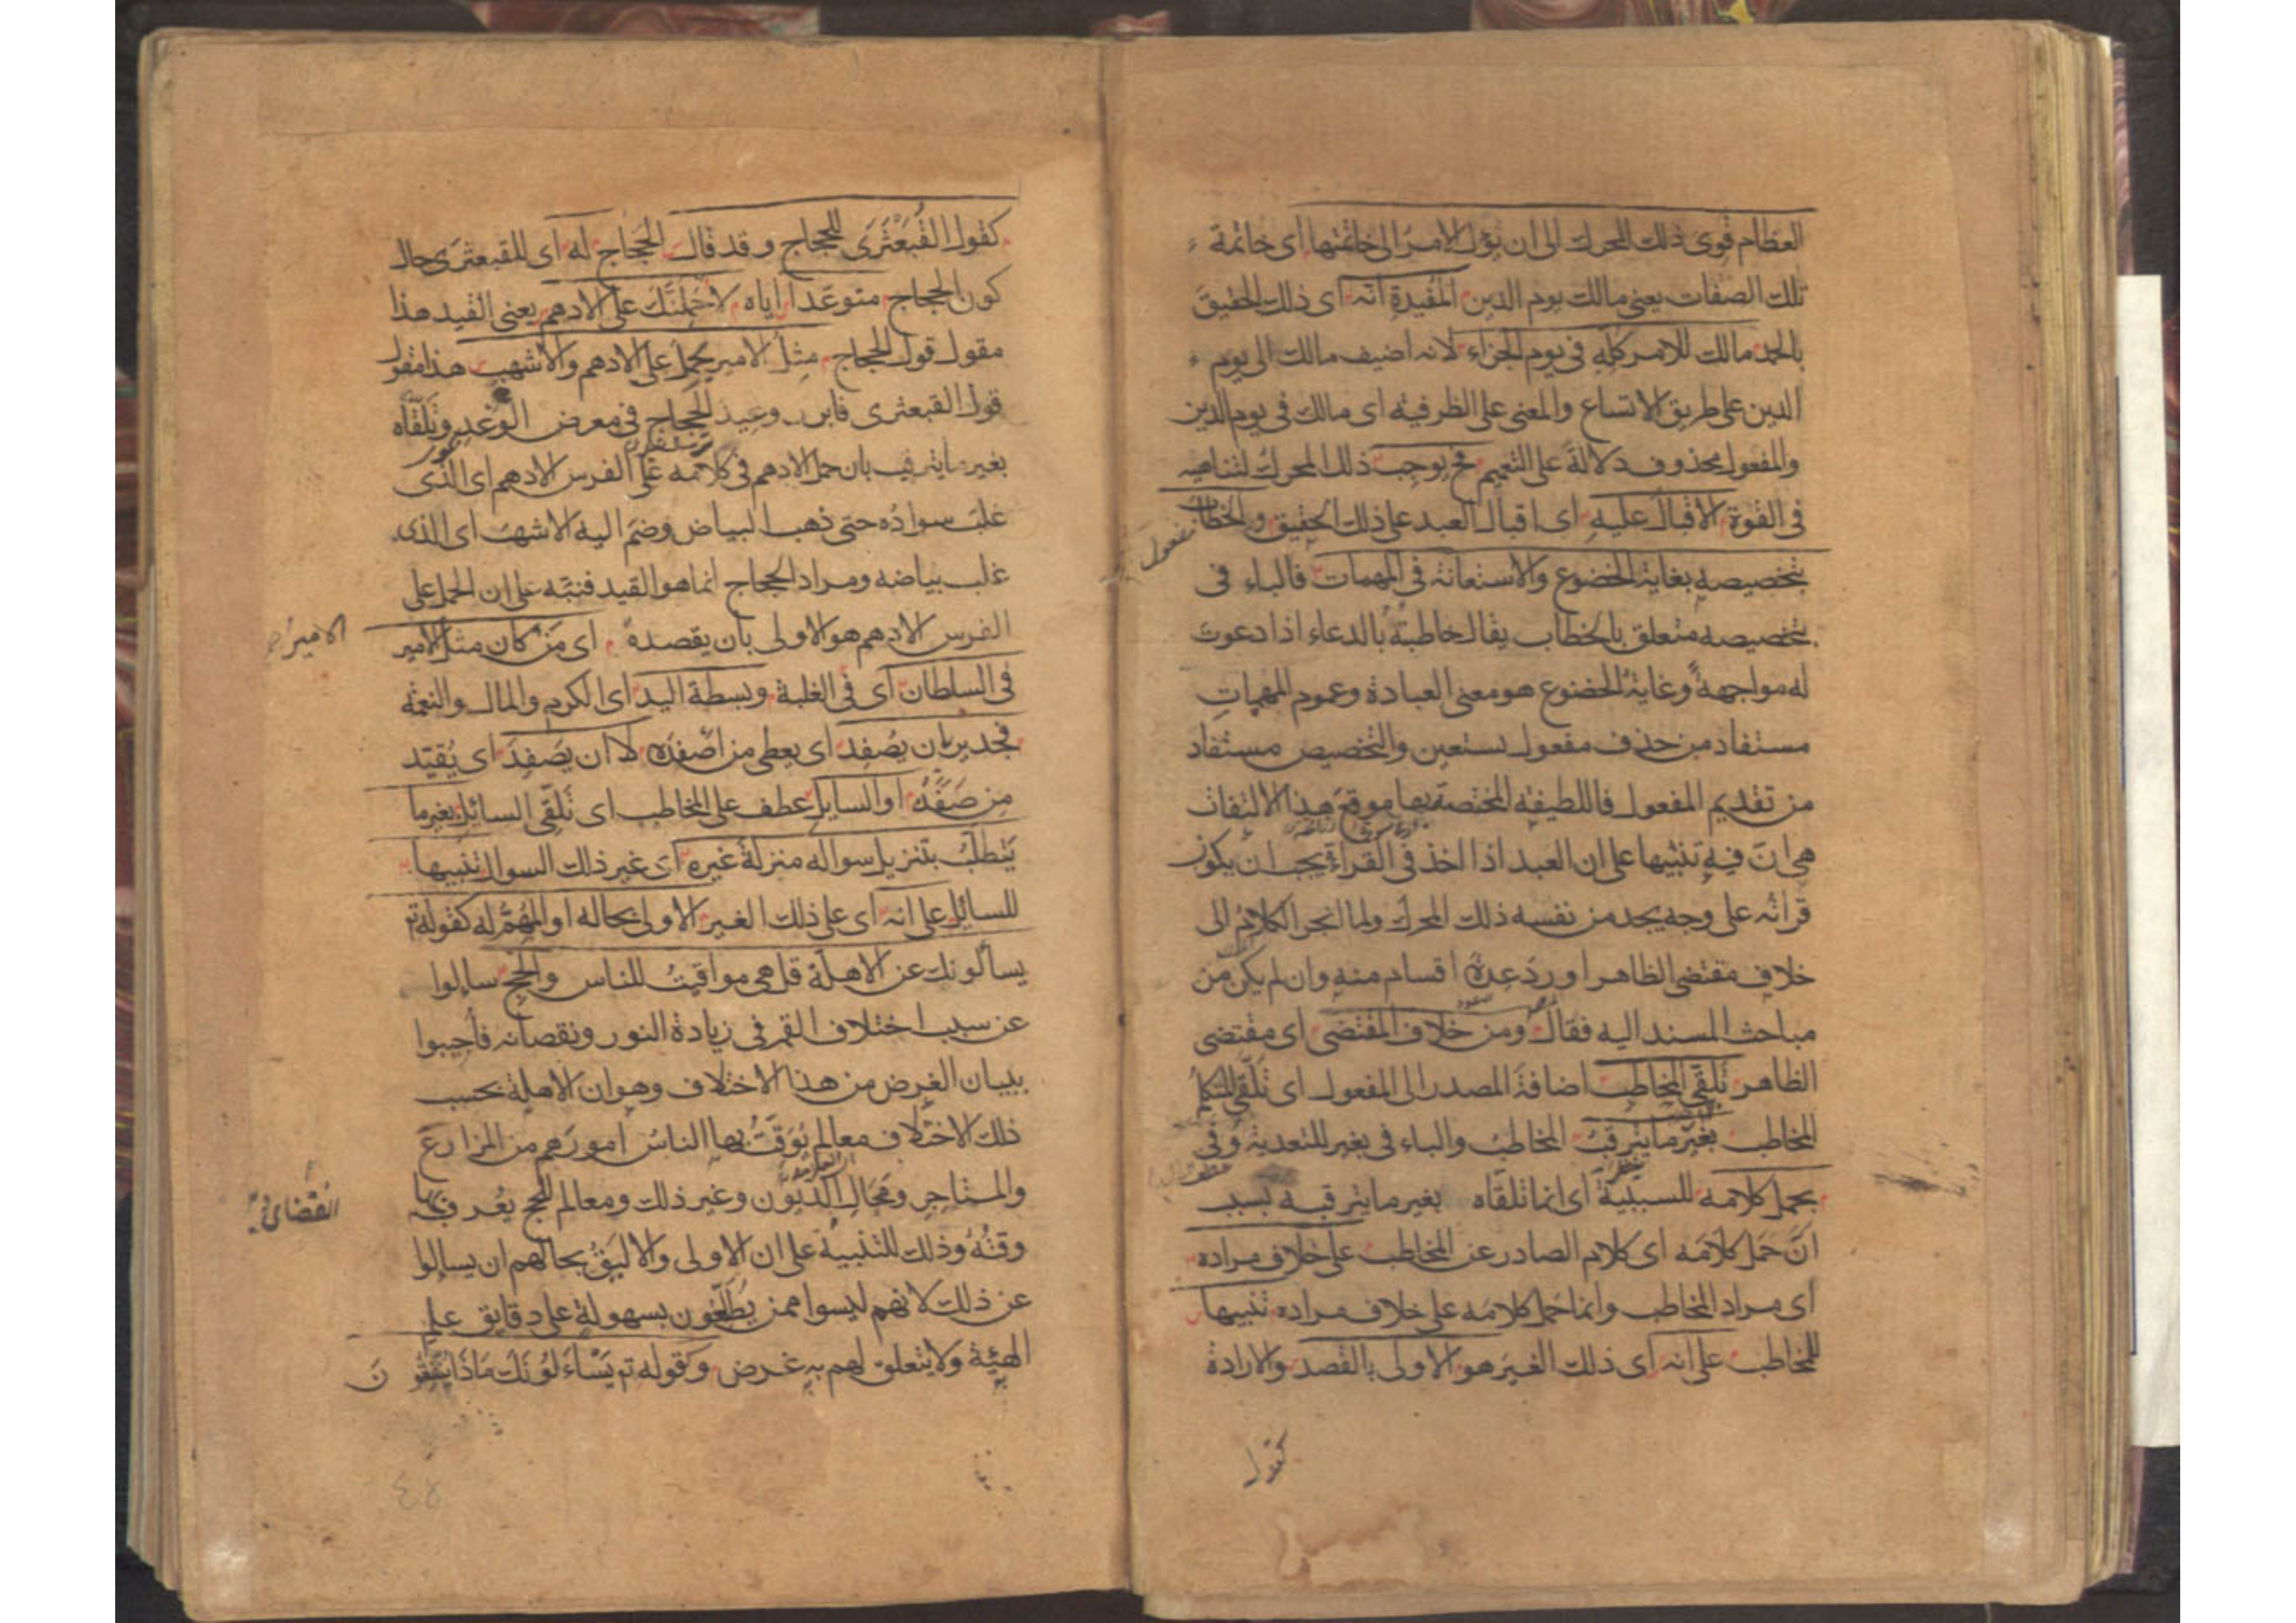 العظام قوى ذلك المحرك الى ان يؤل الامر الى خاتمتها اى خاتمة
تلك الصفات يعنى مالك يوم الدين المفيدة انه اى ذلك الحقيق
بالحمد مالك للامر كله فى يوم الجزاء لانه اضيف مالك الى يوم
الدين على طريق الاتساع والمعنى على الظرفية اى مالك فى يوم الدين
والمفعول محذوف دلالة على التعميم فح يوجب ذلك المحرك لتناهيه
فى القوة الاقبال عليه اى اقبال العبد على ذلك الحقيق والخطاب
بتخصيصه بغاية الخضوع والاستعانة فى المهمات فالباء فى
بتخصيصه متعلق بالخطاب يقال خاطبته بالدعاء اذا دعوت
له مواجهةً وغاية الخضوع هو معنى العبادة وعموم المهمات
مستفاد من حذف مفعول نستعين والتخصيص مستفاد
من تقديم المفعول فاللطيفة المختصة بها موقع هذا الالتفات
هى انّ فيه تنبيها على ان العبد اذا اخذ فى القراءة يجب ان يكون
قرائه على وجه يجد من نفسه ذلك المحرك ولما انجر الكلام الى
خلاف مقتضى الظاهر اورد عدة اقسام منه وان لم يكن من
مباحث المسند اليه فقال ومن خلاف المقتضى اى مقتضى
الظاهر تلقى المخاطب اضافة المصدر الى المفعول اى تلقى المتكلم
المخاطب بغير ما يترقب المخاطب والباء فى بغير للتعدية وفى
بحمل كلامه للسببية اى انما تلقاه بغير ما يترقبه بسبب
انّ حمل كلامه اى كلام الصادر عن المخاطب على خلاف مراده
اى مراد المخاطب وانما حمل كلامه على خلاف مراده تنبيها
للمخاطب على انه اى ذلك الغير هو الاولى بالقصد والارادة
كقول
كقول القبعثرى للحجاج وقد قال الحجاج له اى للقبعثرى حال
كون الحجاج متوعدا اياه لاحملنّك على الادهم يعنى القيد هذا
مقول قول الحجاج مثل الامير يحمل على الادهم والاشهب هذا مقول
قول القبعثرى فابرز وعيد الحجاج فى معرض الوعد وتلقاه
بغير ما يترقب بان حمل الادهم فى كلامه على الفرس الادهم اى الذى
غلب سواده حتى ذهب البياض وضم اليه الاشهب اى الذى
غلب بياضه ومراد الحجاج انما هو القيد فنبّه على ان الحمل على
الفرس الادهم هو الاولى بان يقصده اى من كان مثل الامير
فى السلطان اى فى الغلبة وبسطة اليد اى الكرم والمال والنعمة
فجدير بان يُصفِد اى يعطى من اصفده لا ان يَصفِد اى يُقيّد
من صَفَدَهُ او السايل عطف على المخاطب اى تلقى السائل بغير ما
يتطلب بتنزيل سواله منزلة غيره اى غير ذلك السوال تنبيها
للسائل على انه اى على ذلك الغير الاولى بحاله او المهم له كقوله تع
يسألونك عن الاهلة قل هى مواقيت للناس والحج سالوا
عن سبب اختلاف القمر فى زيادة النور ونقصانه فأجيبوا
ببيان الغرض من هذا الاختلاف وهو ان الاهلة بحسب
ذلك الاختلاف معالم يوقّت بها الناس امورهم من المزارع
والمتاجر ومحال الديون وغير ذلك ومعالم للحج يعرف بها
وقته وذلك للتنبيه على ان الاولى والاليق بحالهم ان يسالوا
عن ذلك لانهم ليسوا ممن يطلعون بسهولة على دقايق علم
الهيئة ولا يتعلق لهم به غرض وكقوله تع يسألونك ماذا ينفقون